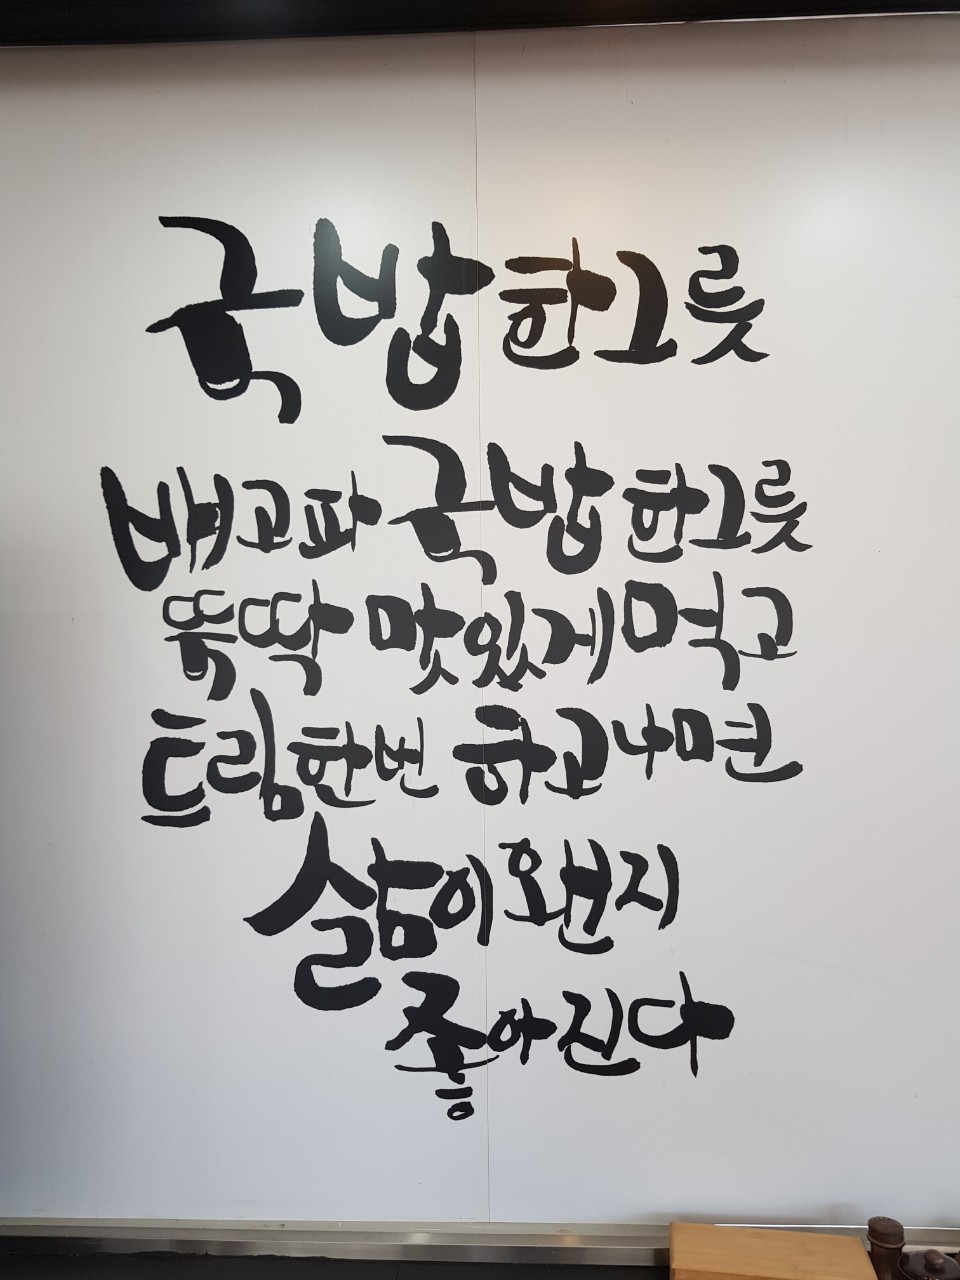 국밥 한그릇
배고파 국밥 한그릇
뚝딱 맛있게 먹고
트림 한번 하고나면
삶이 왠지
좋아진다